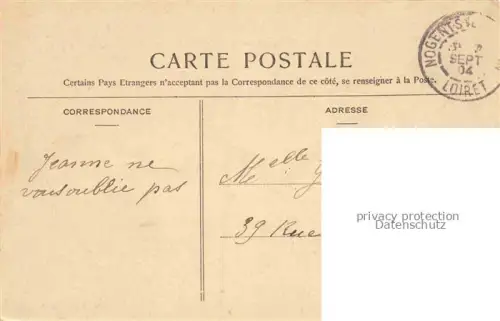 CARTE POSTALE
Certains Pays Etrangers n'acceptant pas la Correspondance de ce côté, se renseigner à la Poste.
CORRESPONDANCE
ADRESSE
Jeanne ne
vous oublie pas
Melle
39 Rue
NOGENT-S
SEPT
04
LOIRET
privacy protection
Datenschutz